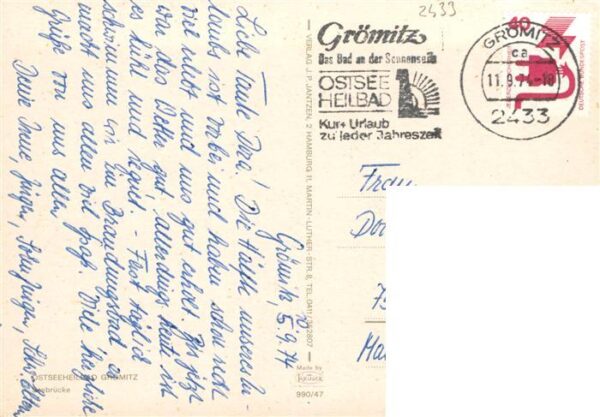 2433
Grömitz
Das Bad an der Sonnenseite
OSTSEE
HEILBAD
Kur + Urlaub
zu jeder Jahreszeit
GRÖMITZ
ca
11.9.74-18
2433
40
Grömitz, 5.9.74
Liebe Tante Dora! Die Hälfte unseres Ur-
laubs ist vorbei und haben schon sehr
viel erlebt und uns gut erholt. Bis jetzt
war das Wetter gut allerdings heute ist
es kühl und regnet. - Fast täglich
schwimmen wir im Brandungsbad es
macht uns allen viel Spaß. Viele herzliche
Grüße von uns allen
Deine Jürgen,
Frau
VERLAG J.P. JANTZEN, 2 HAMBURG 11, MARTIN-LUTHER-STR. 8, TEL. 0411/362807
Made by
Krüger
990/47
OSTSEEHEILBAD GRÖMITZ
Seebrücke